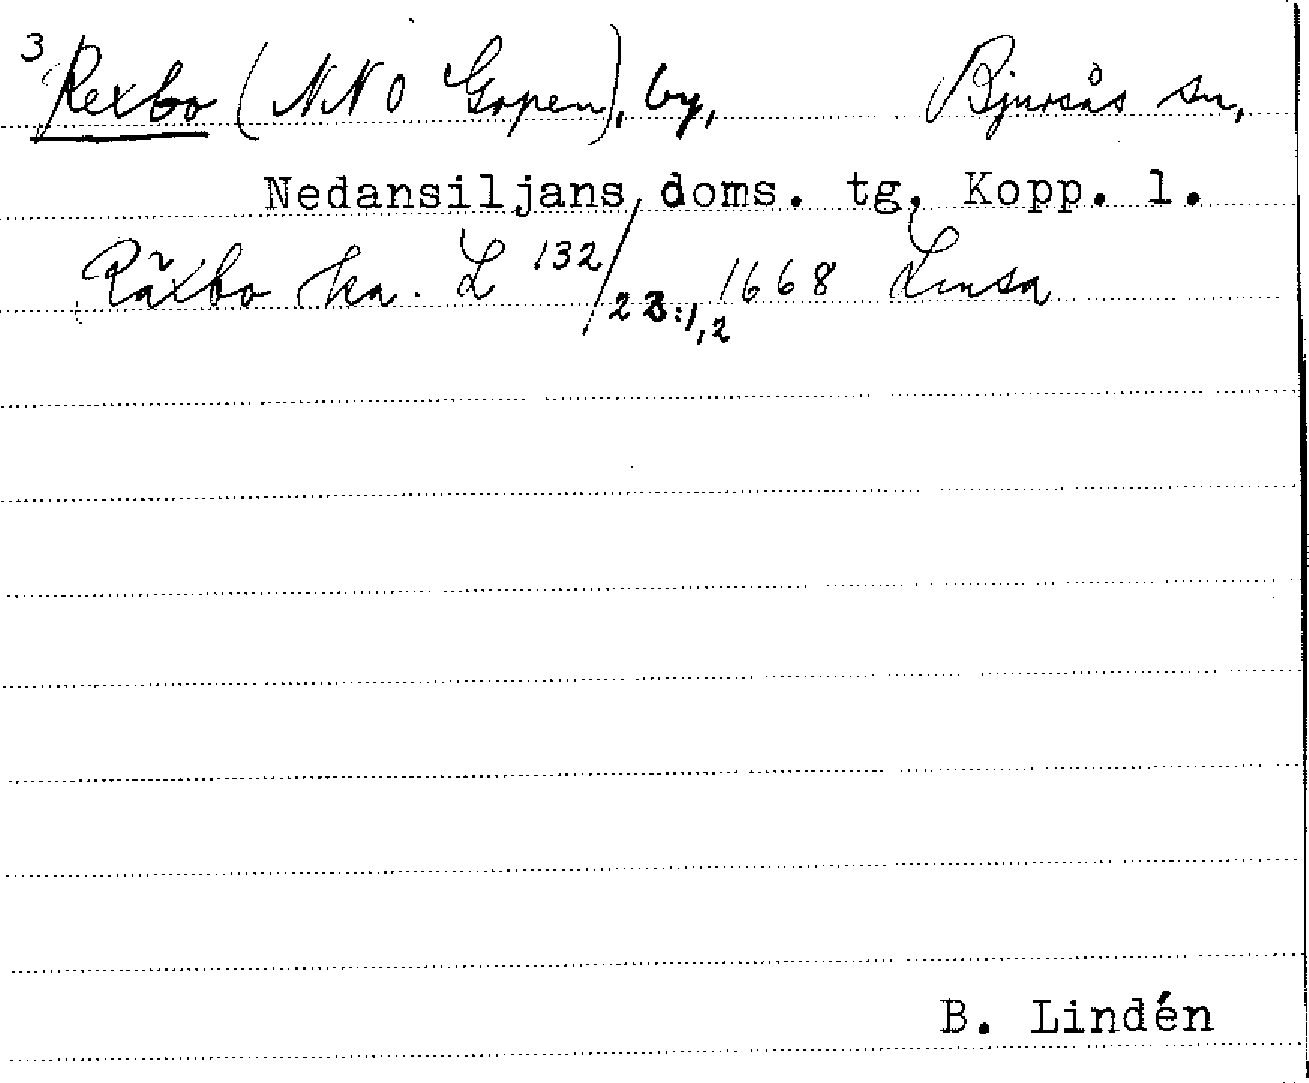 3 Rexbo (NNO Gopen), by, Bjursås sn,
Nedansiljans doms. tg, Kopp. l.
Räxbo ka. L 132/23:1,2 1668 Lmsa
B. Lindén